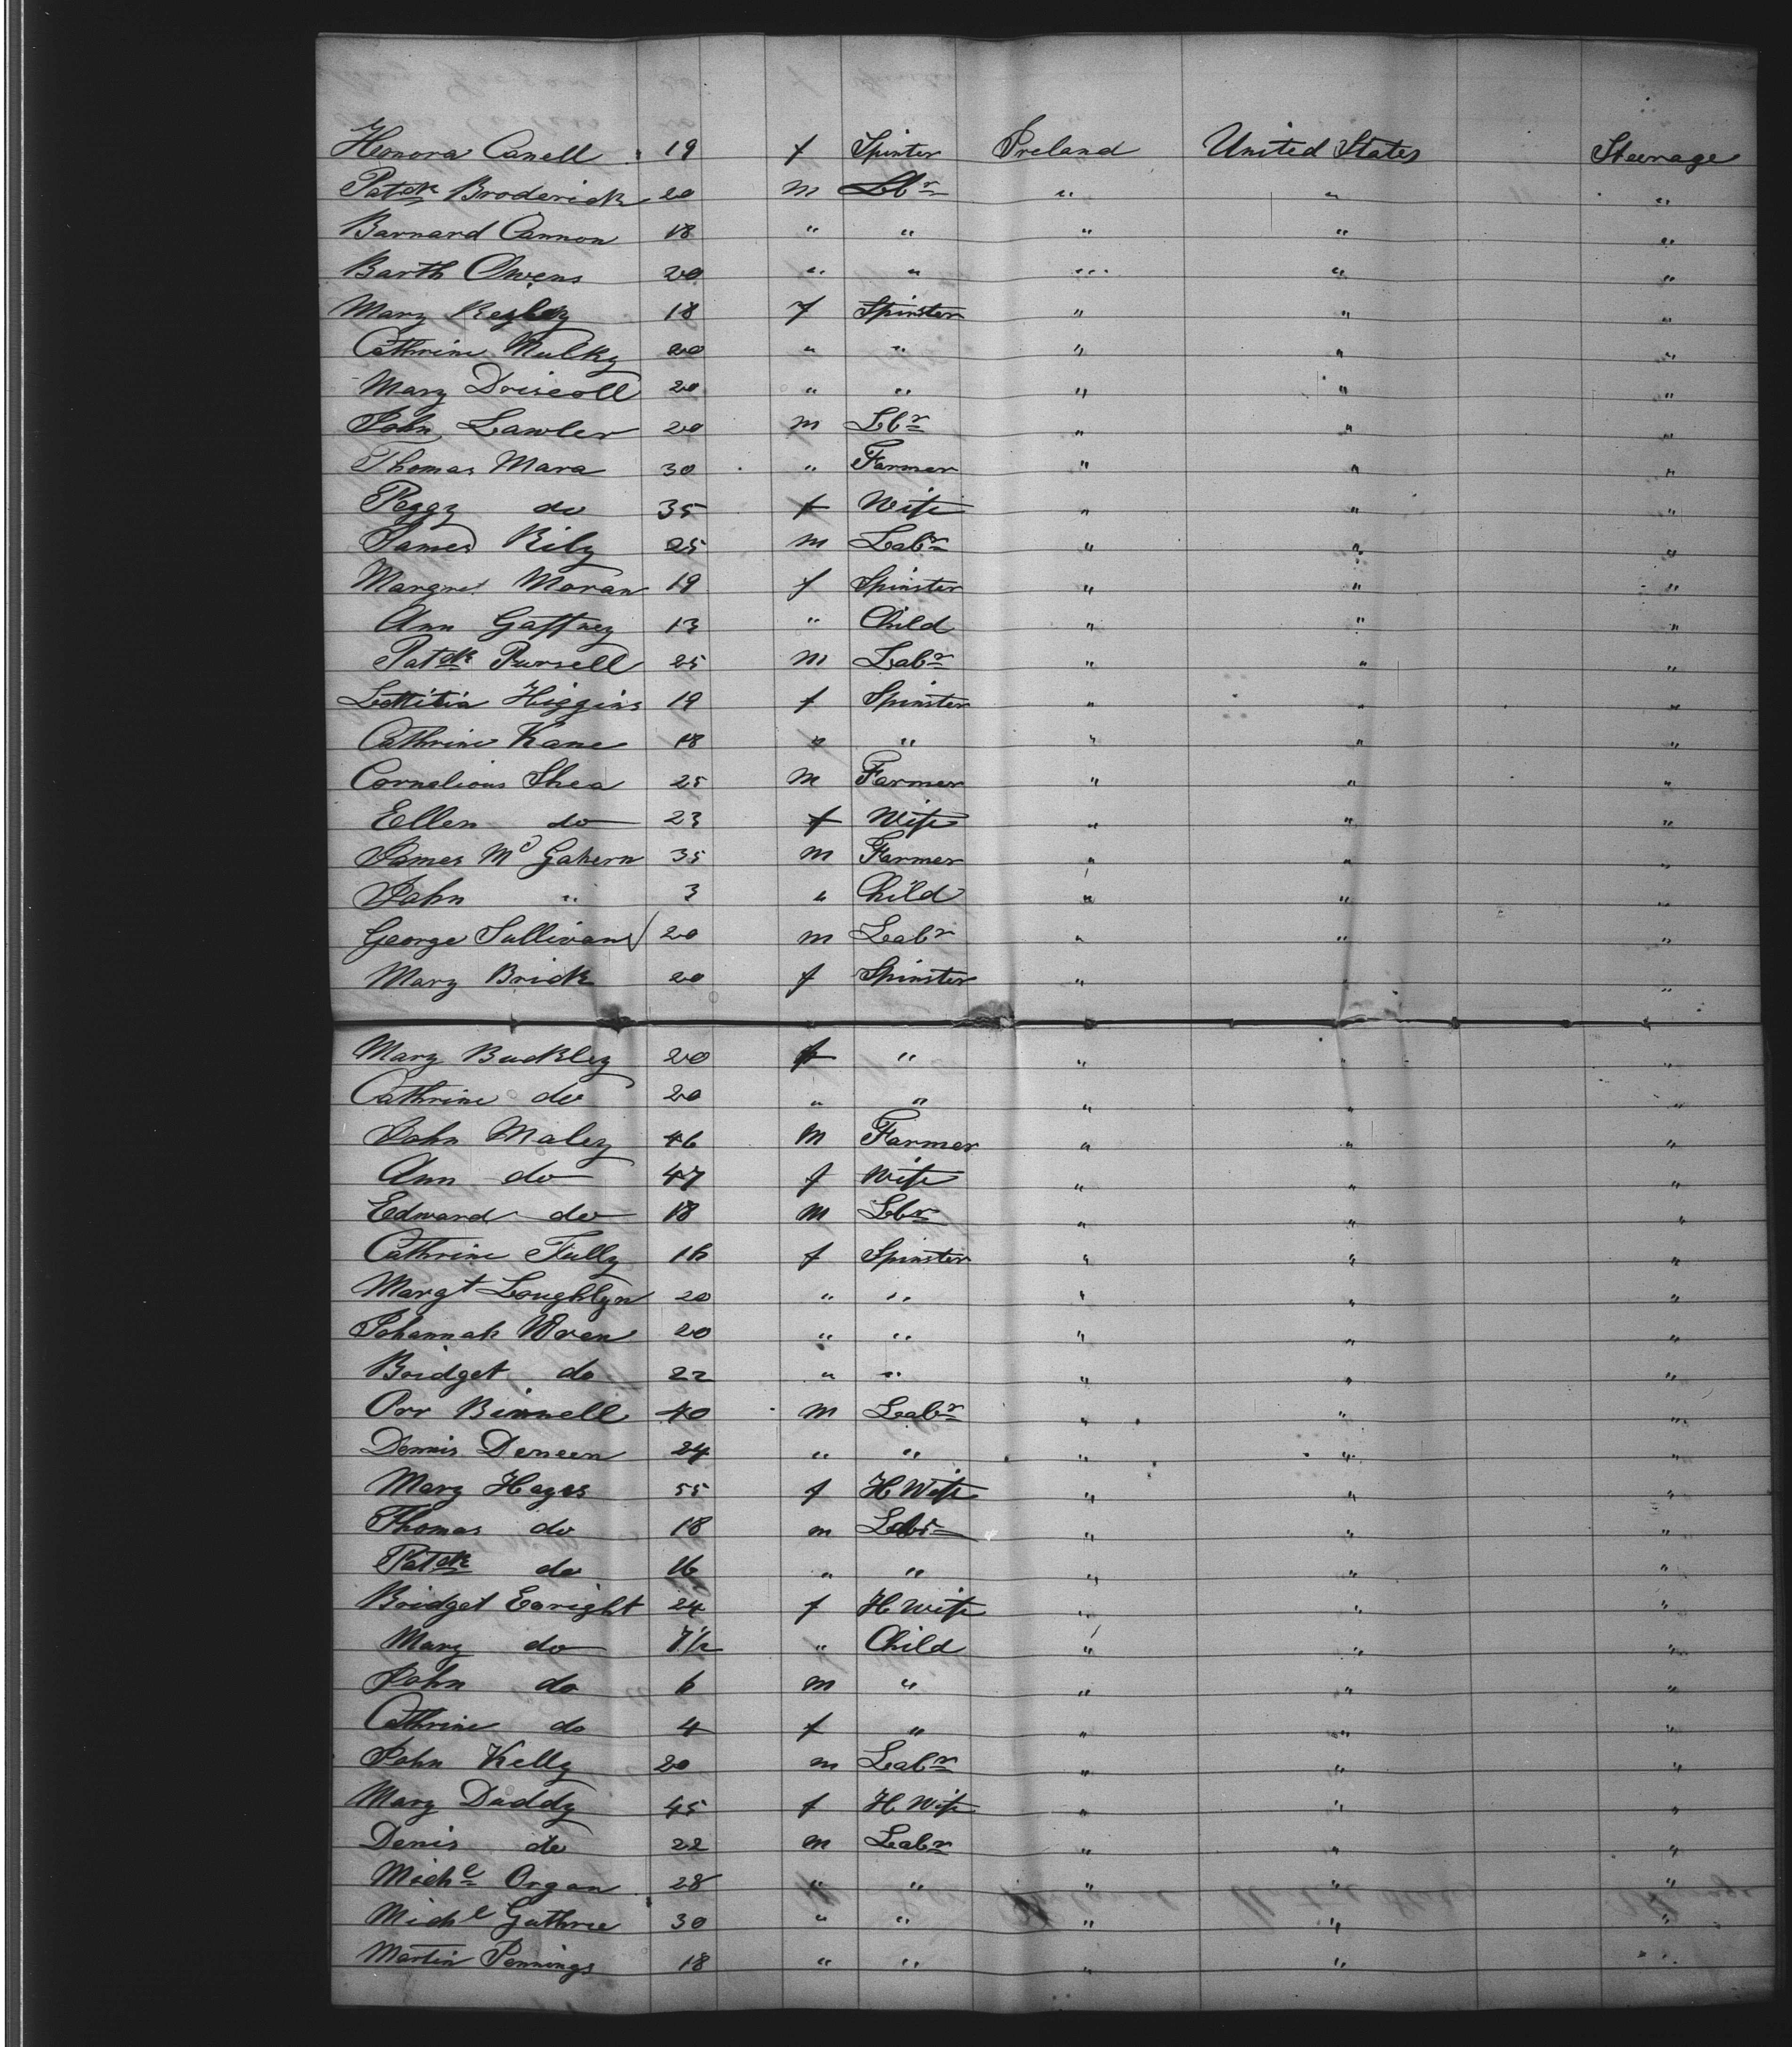 Honora Canell 19 f Spinter Ireland United States Steerage
Patck Broderick 20 m Lbr " " "
Barnard Cannon 18 " " " " "
Barth Owens 20 " " " " "
Mary 18 f Spinster " " "
Cathrine Mulky 20 " " " " "
Mary Driscoll 20 " " " " "
John Lawler 20 m Lbr " " "
Thomas Mara 30 " Farmer " " "
Peggy do 35 f Wife " " "
James Rily 25 m Labr " " "
Margret Moran 19 f Spinster " " "
Ann Gaffney 13 " Child " " "
Patck Pursell 25 m Labr " " "
Lettitia Higgins 19 f Spinster " " "
Cathrine Kane 18 " " " " "
Cornelious Shea 25 m Farmer " " "
Ellen do 23 f Wife " " "
James Mc Gahern 35 m Farmer " " "
John " 3 " Child " " "
George Sullivan 20 m Labr " " "
Mary Brick 20 f Spinster " " "
Mary Buckley 20 f " " " "
Cathrine do 20 " " " " "
John Maley 46 m Farmer " " "
Ann do 47 f Wife " " "
Edward do 18 m Lbr " " "
Cathrine Tully 16 f Spinster " " "
Margt Loughlyn 20 " " " " "
Johannah Wren 20 " " " " "
Bridget do 22 " " " " "
Orr Binnell 40 m Labr " " "
Dennis Deneen 24 " " " " "
Mary Hayes 55 f H Wife " " "
Thomas do 18 m Labr " " "
Patck do 16 " " " " "
Bridget Enright 24 f H Wife " " "
Mary do 7½ " Child " " "
John do 6 m " " " "
Cathrine do 4 f " " " "
John Kelly 20 m Labr " " "
Mary Duddy 45 f H Wife " " "
Denis do 22 m Labr " " "
Michl Organ 28 " " " " "
Michl Guthrie 30 " " " " "
Martin Jennings 18 " " " " "